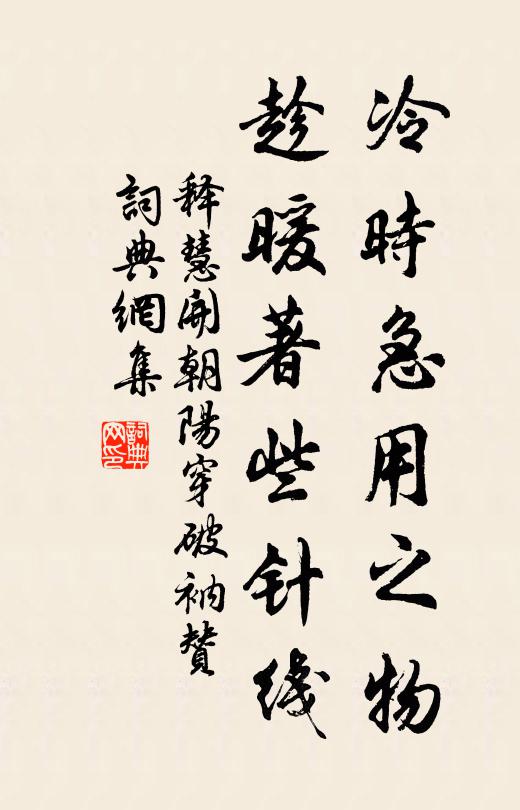 冷時急用之物
趁暖著些针线
释慧開朝陽穿破衲贊
詞典網集
詞典网印